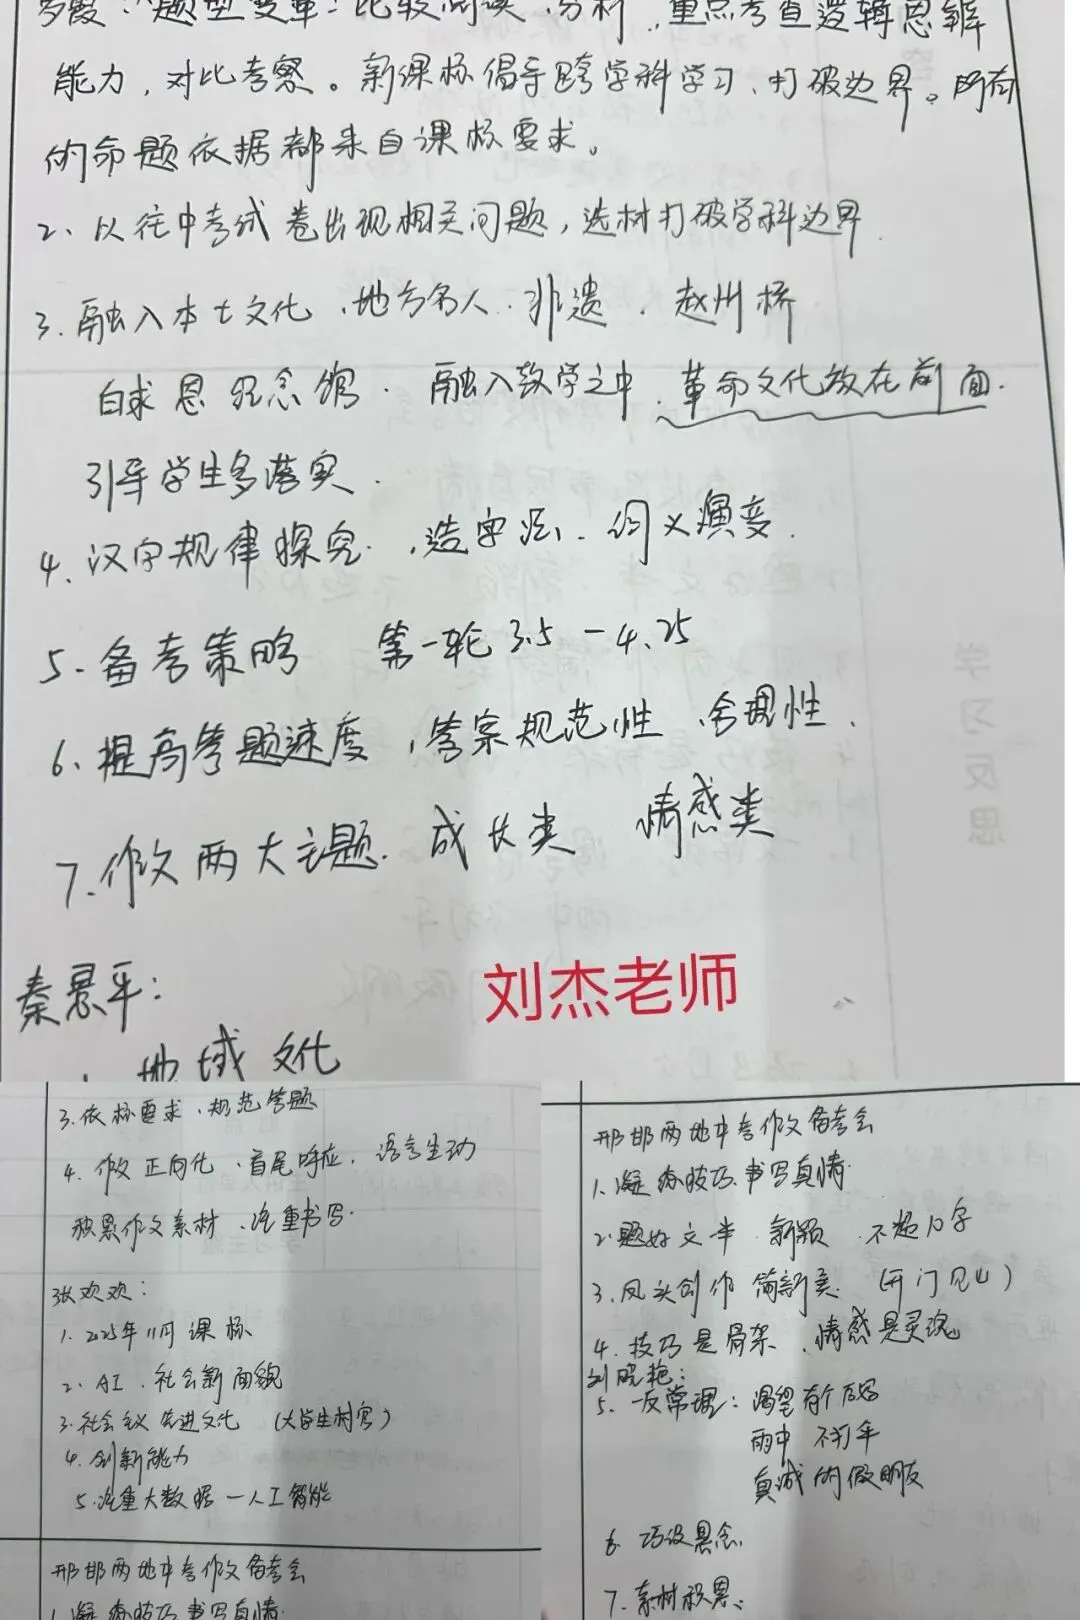 多震：题型变革：比较阅读、分析，重点考查逻辑思辨
能力，对比考察。新课标倡导跨学科学习、打破边界。所有
的命题依据都来自课标要求。
2、以往中考试卷出现相关问题，选材打破学科边界.
3.融入本土文化、地方名人、非遗、赵州桥
白求恩纪念馆. 融入教学之中.革命文化放在前面.
引导学生多落实.
4.汉字规律探究.，造字法、词义演变.
5.备考策略 第一轮3.5-4.25
6、提高答题速度，答案规范性、合理性.
7.作文两大主题. 成长类 情感类
秦景平：
地域文化
刘杰老师
3.依标要求、规范答题
4.作文正向化、首尾呼应，语言生动
积累作文素材、注重书写.
张欢欢：
1.2025年11月课标
2.AI、社会新面貌
3.社会主义先进文化 (大学生村官)
4.创新能力
5.注重大数据—人工智能
邢邯两地中考作文备考会
1.凝练技巧.书写真情
邢邯两地中考作文备考会
1.凝练技巧.书写真情.
2.题好文半.新颖.不超10字
3.凤头创作 简新美 (开门见山)
4.技巧是骨架、情感是灵魂
刘晓艳：
5.反常理：渴望有个
雨中不打伞
真诚的假朋友
6 巧设悬念.
7.素材积累.